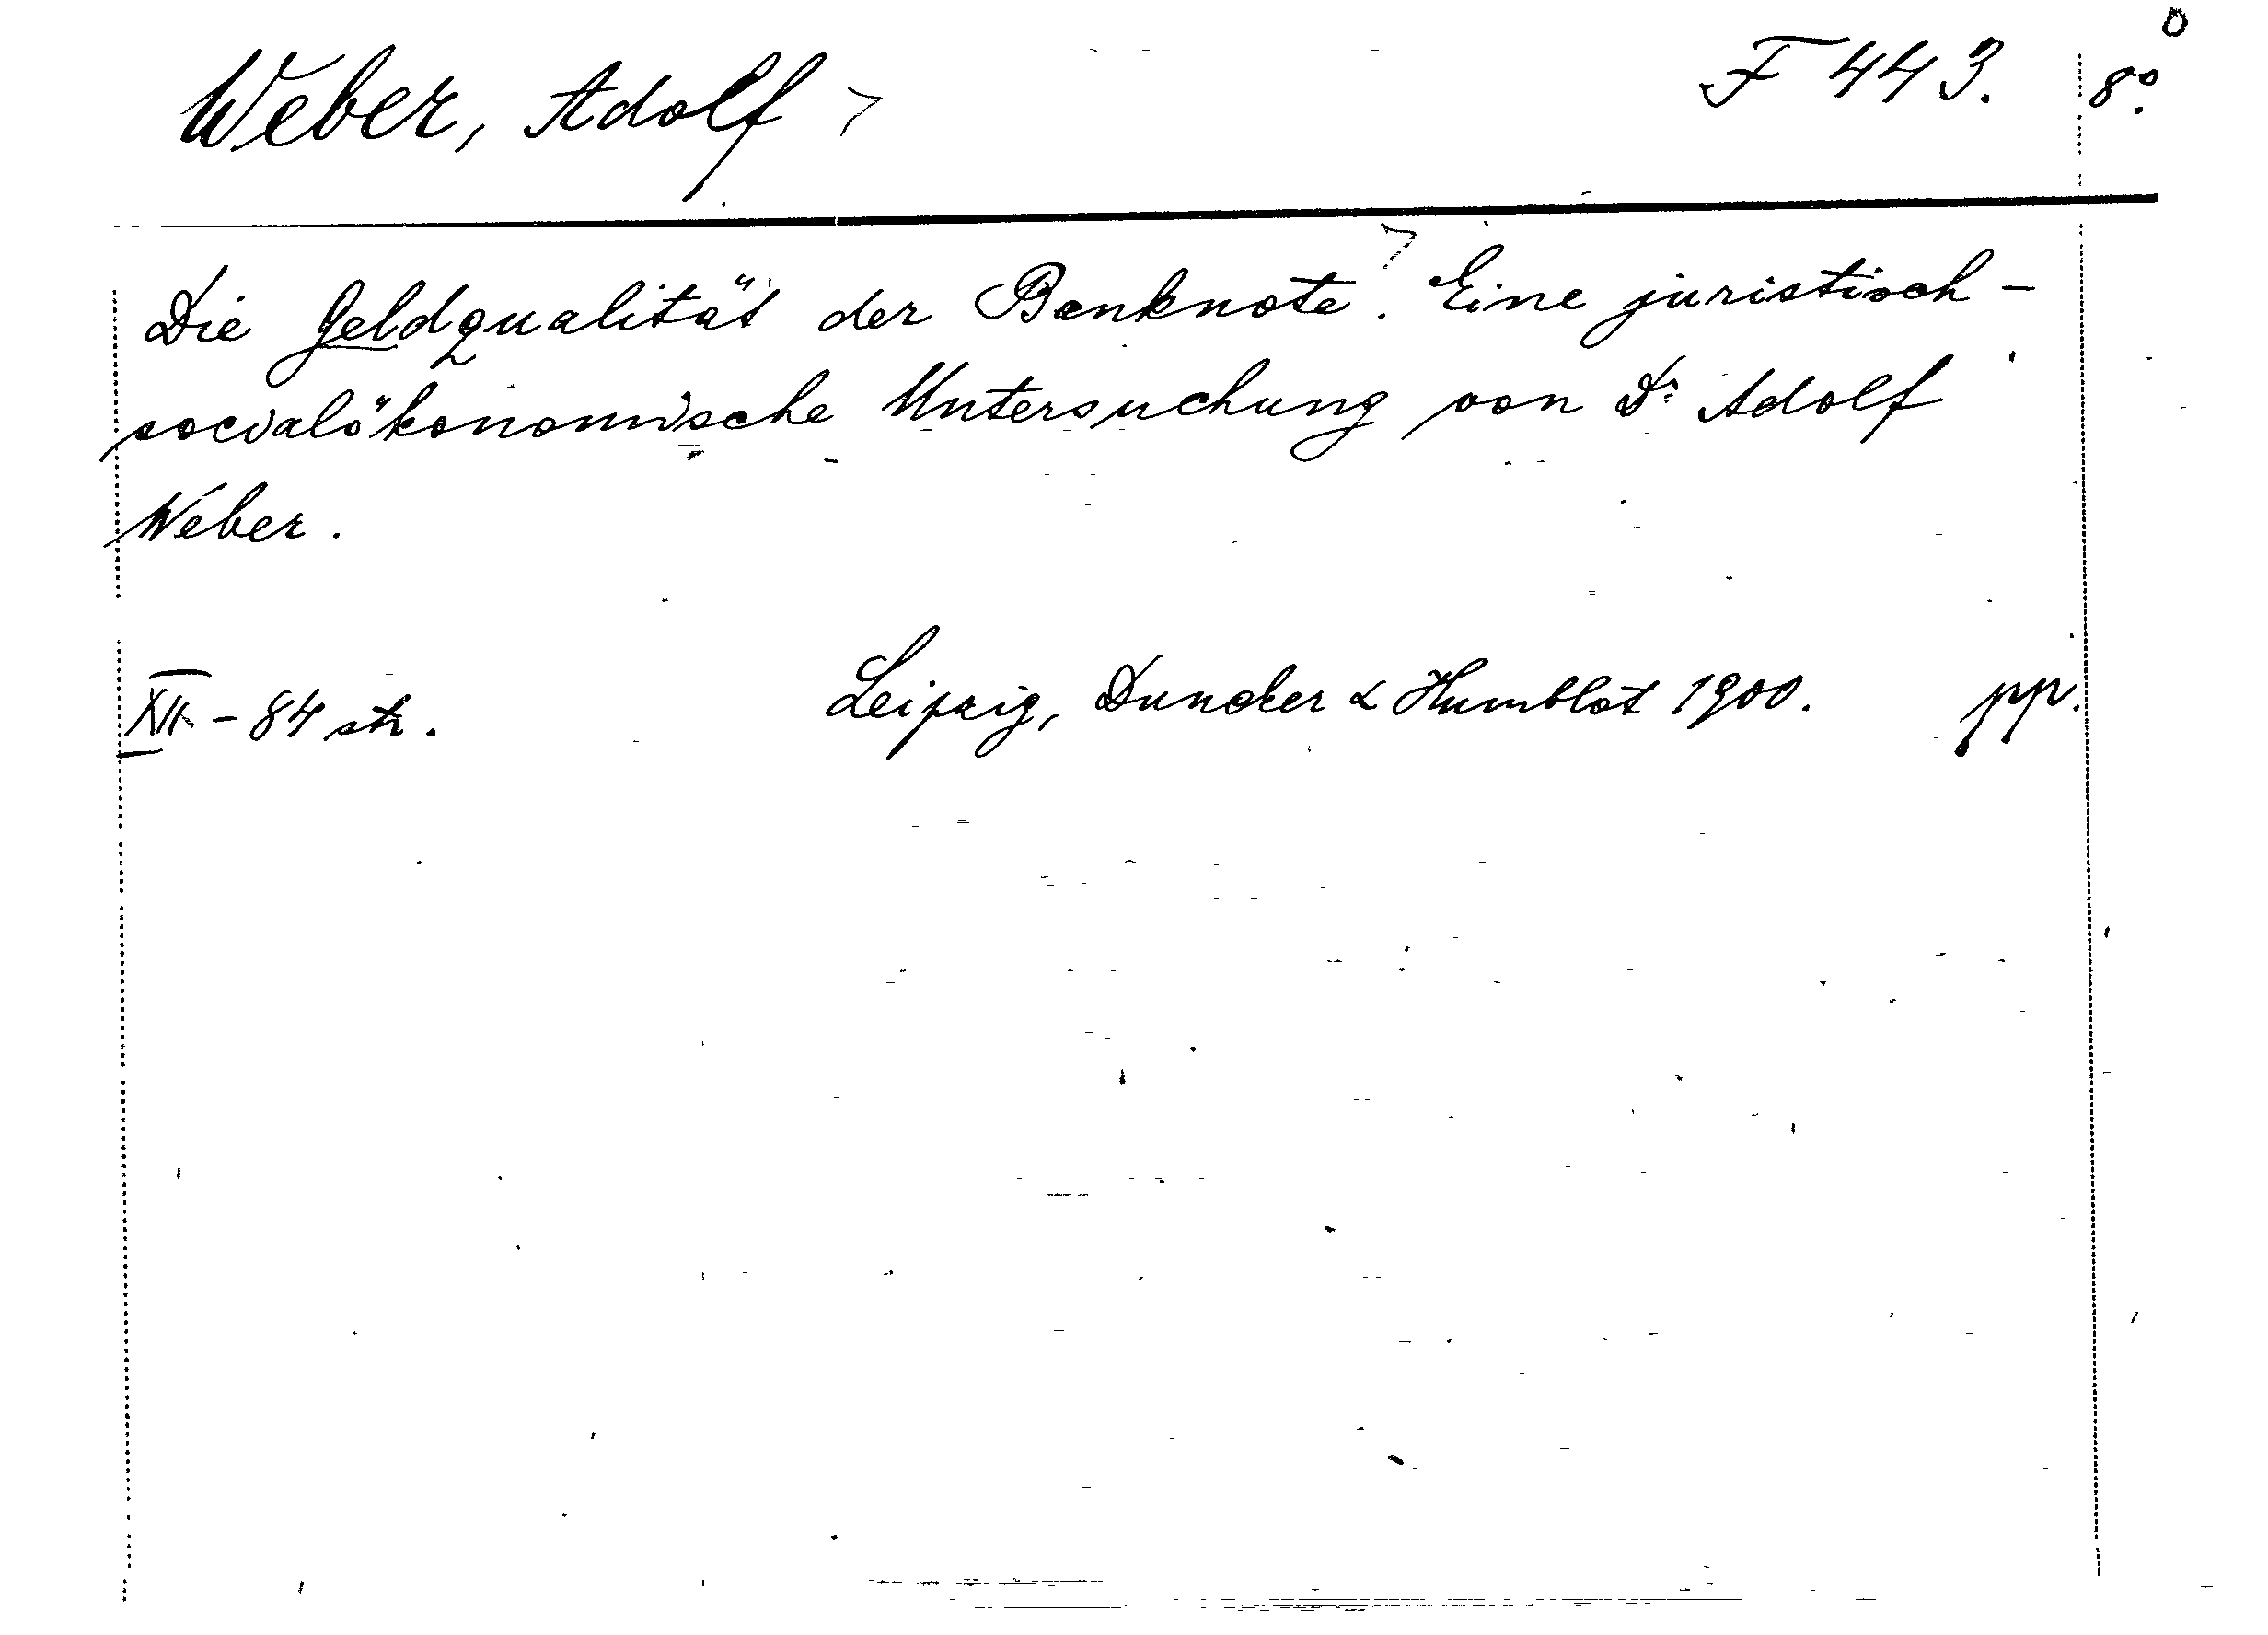 Weber, Adolf F 443. 8º.
Die Geldqualität der Banknote. Eine juristisch-
socialökonomische Untersuchung von Dr Adolf
Weber.
XII - 84 str. Leipzig, Duncker & Humblot 1900. pp.